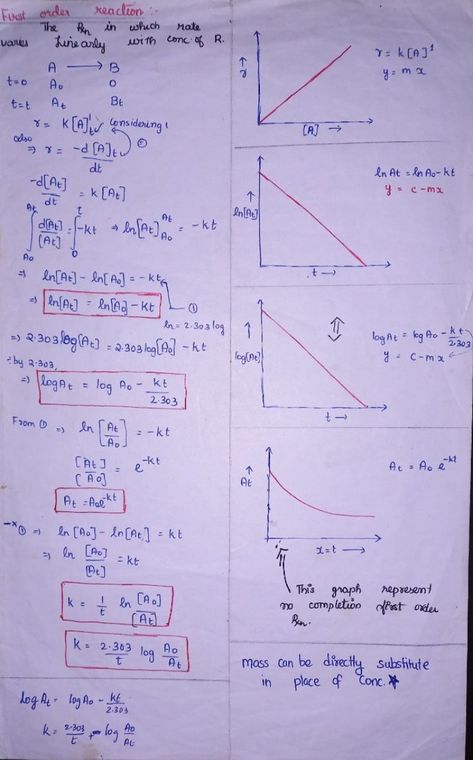 First order reaction :-
The Rxn in which rate
varies Linearly with conc. of R.
A ⟶ B
t=0 A₀ 0
t=t At Bt
r = K[A]ₜ¹ considering 1
also
⇒ r = -d[A]t / dt
-d[At]/dt = k[At]
∫ d[At]/[At] = ∫ -kt ⇒ ln[At] = -kt
At
A₀
t
0
At
A₀
⇒ ln[At] - ln[A₀] = -kt
⇒ ln[At] = ln[A₀] - kt ①
ln = 2.303 log
⇒ 2.303 log[At] = 2.303 log[A₀] - kt
÷ by 2.303,
⇒ log At = log A₀ - kt/2.303
From ① ⇒ ln [At/A₀] = -kt
[At]/[A₀] = e^-kt
At = A₀e^-kt
-x① ⇒ ln[A₀] - ln[At] = kt
⇒ ln [A₀]/[At] = kt
k = 1/t ln [A₀]/[At]
k = 2.303/t log A₀/At
Log At = log A₀ - kt/2.303
k = 2.303/t log A₀/At
↑
r
[A] →
r = k[A]¹
y = m x
↑
ln[At]
t →
ln At = ln A₀ - kt
y = c - mx
↑
log[At]
t →
⇕
log At = log A₀ - kt/2.303
y = c - mx
↑
At
x=t →
At = A₀ e^-kt
This graph represent
no completion of first order
Rxn.
mass can be directly substitute
in place of Conc. ★